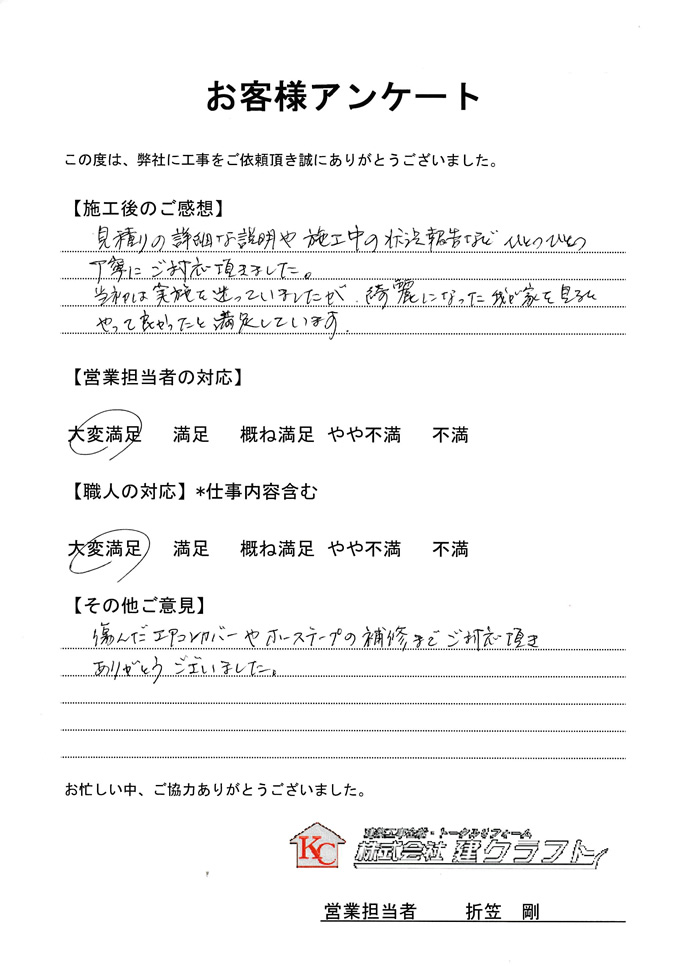 お客様アンケート
この度は、弊社に工事をご依頼頂き誠にありがとうございました。
【施工後のご感想】
見積りの詳細な説明や施工中の状況報告などひとつひとつ
丁寧にご対応頂きました。
当初は実施を迷っていましたが、綺麗になった我が家を見ると
やって良かったと満足しています。
【営業担当者の対応】
大変満足 満足 概ね満足 やや不満 不満
【職人の対応】*仕事内容含む
大変満足 満足 概ね満足 やや不満 不満
【その他ご意見】
傷んだエアコンカバーやホーステープの補修までご対応頂き
ありがとうございました。
お忙しい中、ご協力ありがとうございました。
KC
建築工事全般・トータルリフォーム
株式会社 建クラフト
営業担当者 折笠 剛